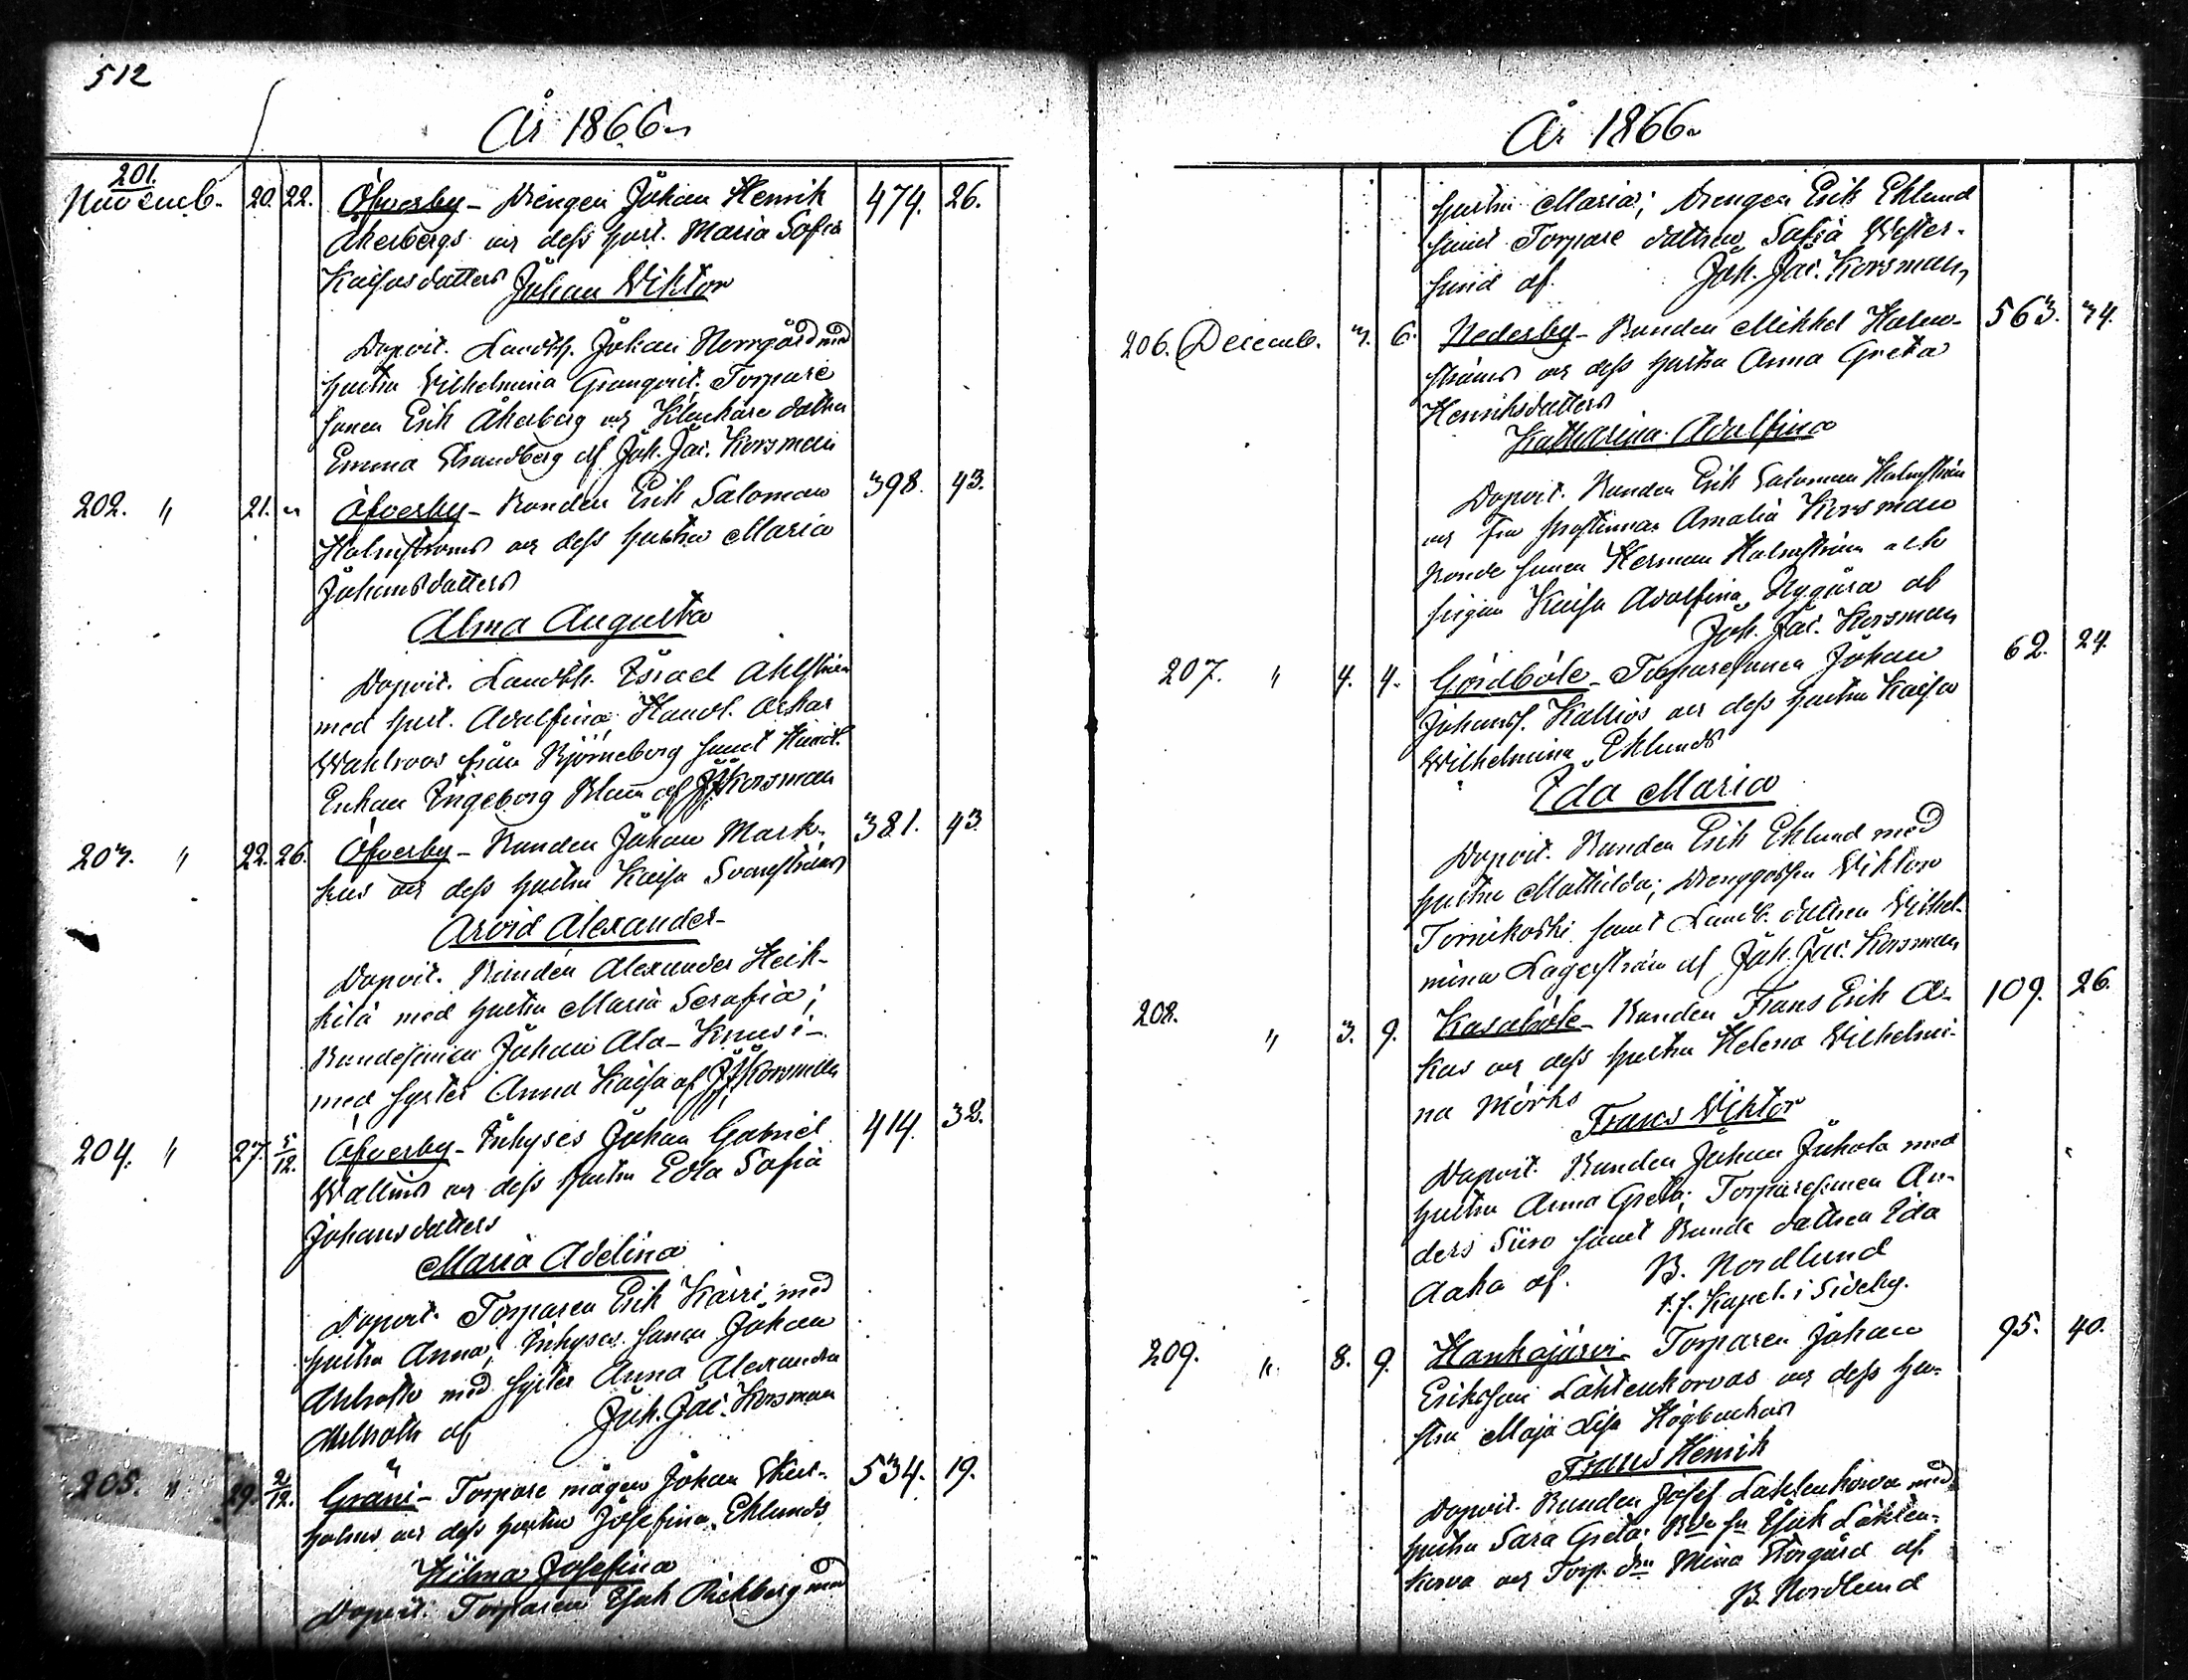 512
År 1866
201.
Novemb. 20. 22. Öfverby - Drengen Johan Henrik 474. 26.
Åkerbergs och dess hust. Maria Sofia
Kaisasdotters Johan Viktor
Dopvit. Landtb. Johan Norrgård med
hustru Vilhelmina Granqvist. Torpare
sonen Erik Åkerberg och Klockare dottren
Emma Strandberg af Joh. Jac. Korsman
202. " 21. " Öfverby - Bonden Erik Salomon 398. 43.
Holmströms och dess hustru Maria
Johansdotters
Alma Augusta
Dopvit. Landtb. Israel Ahlström
med hust. Adolfina; Handl. Oskar
Wahlroos från Björneborg samt
Enkan Ingeborg Blom af J J Korsman
203. " 22. 26. Öfverby - Bonden Johan Mark- 381. 43.
kus och dess hustru Kaisa Svanströms
Arvid Alexander
Dopvit. Bonden Alexander Heik-
kilä med hustru Maria Serafia;
Bondesonen Johan Ala-Knusi
med syster Anna Kaisa af J J Korsman
204. " 27. 5/12. Öfverby - Inhyses Johan Gabriel 414. 32.
Wallins och dess hustru Edla Sofia
Johansdotters
Maria Adelina
Dopvit. Torparen Erik Kärri med
hustru Anna; Inhyses sonen Johan
Ahlroth med syster Anna Alexandra
Ahlroth af Joh. Jac. Korsman
205. " 29. 2/12. Gräni - Torpare mågen Johan Skut- 534. 19.
holms och dess hustru Josefina Ehlunds
Hilma Josefina
Dopvit. Torparen Isak Richberg med
År 1866
hustru Maria; Drengen Erik Ehlund
samt Torpare dottren Sofia Wester-
lund af Joh. Jac. Korsman
206. Decemb. 3. 6. Nederby - Bonden Mikkel Holm- 563. 34.
ströms och dess hustru Anna Greta
Henriksdotters
Katharina Adolfina
Dopvit. Bonden Erik Salomon Holmström
och fru prostinnan Amalia Korsman
Bonde sonen Herman Holmström och
pigan Kaisa Adolfina Nygård af
Joh. Jac. Korsman
207. " 4. 4. Gördböle - Torparesonen Johan 62. 24.
Johanss. Kallios och dess hustru Kaisa
Wilhelmina Ehlunds
Ida Maria
Dopvit. Bonden Erik Ehlund med
hustru Mathilda; Drenggossen Viktor
Tornikoski samt Landtb. dottren Vilhel-
mina Lagerström af Joh. Jac. Korsman
208. " 3. 9. Kasaböle - Bonden Frans Erik A- 109. 26.
kas och dess hustru Helena Vilhelmi-
na Mörks
Frans Viktor
Dopvit. Bonden Johan Juhola med
hustru Anna Greta; Torparesonen An-
ders Siiro samt Bonde dottren Ida
Aaka af B. Nordlund
t.f. Kapel. i Sideby.
209. " 8. 9. Hankojärvi - Torparen Johan 95. 40.
Eriksson Lähtenkorvas och dess hu-
stru Maja Lisa Högbackas
Frans Henrik
Dopvit. Bonden Josef Lähtenkorva med
hustru Sara Greta; Bde sn Isak Lähten-
korva och Torp. dn Mina Storgård af
B. Nordlund